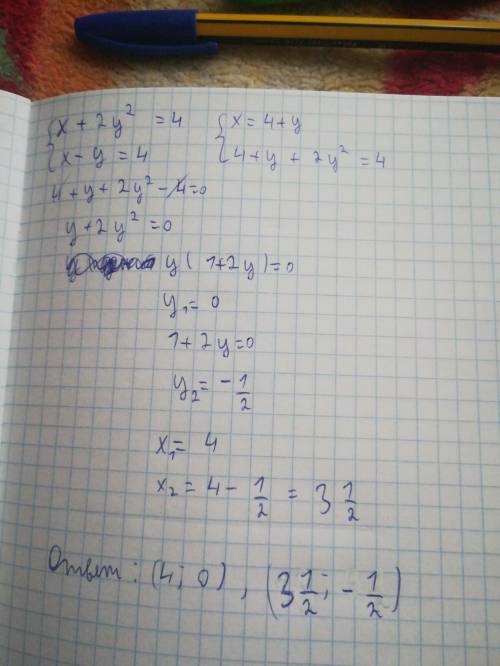 {x + 2y² = 4 {x = 4+y
{x - y = 4 {4+y + 2y² = 4
4 + y + 2y² - 4 = 0
y + 2y² = 0
y( 1+2y)=0
y₁ = 0
1 + 2y=0
y₂ = - 1/2
x₁ = 4
x₂ = 4 - 1/2 = 3 1/2
Ответ: (4; 0), (3 1/2; - 1/2)